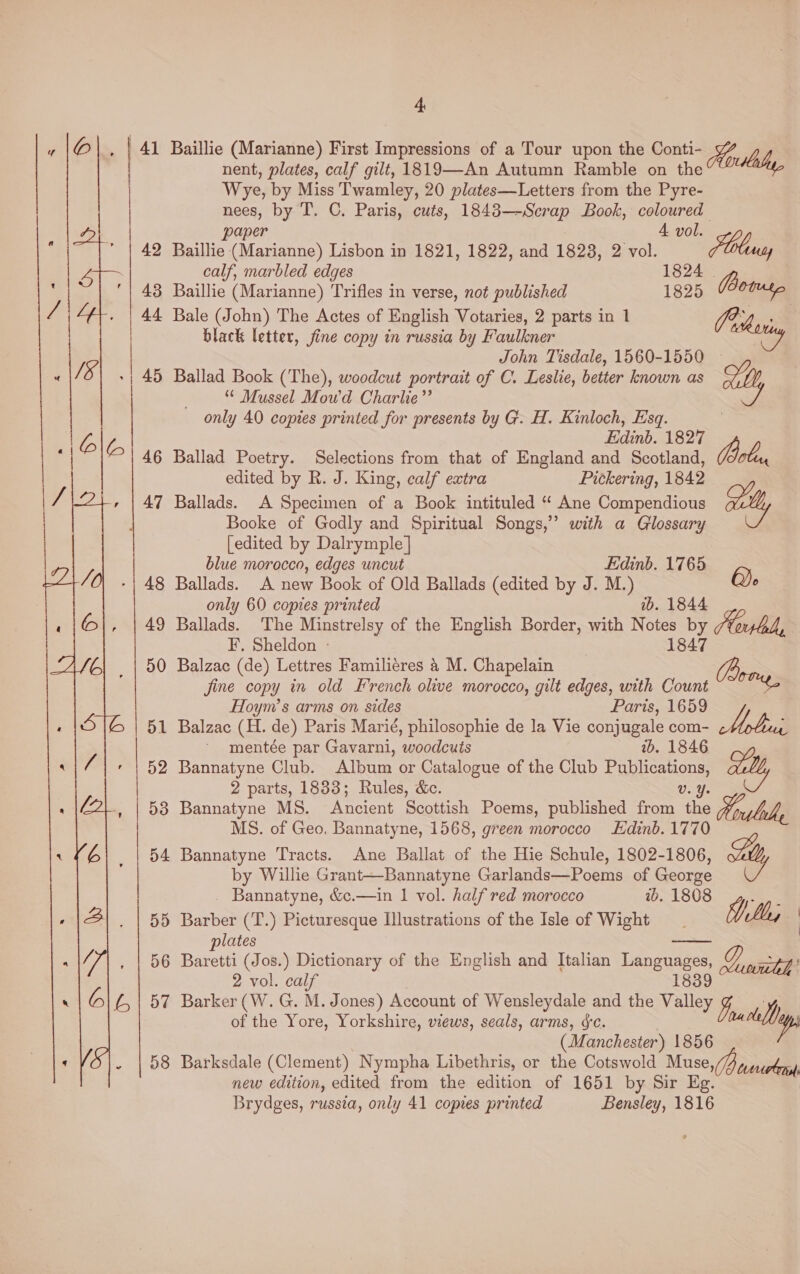 4
" 6 . 41 Baillie (Marianne) First Impressions of a Tour upon the Conti-
nent, plates, calf gilt, 1819—An Autumn Ramble on the
Wye, by Miss Twamley, 20 plates—Letters from the Pyre-
nees, by T. C. Paris, cuts, 1843—Scrap Book, coloured
paper 4 vol.
" 2 . 42 Baillie (Marianne) Lisbon in 1821, 1822, and 1823, 2 vol.
calf, marbled edges 1824
" 5 43 Baillie (Marianne) Trifles in verse, not published 1825
1 4 . 44 Bale (John) The Actes of English Votaries, 2 parts in 1 Pickering
black letter, fine copy in russia by Faulkner
John Tisdale, 1560-1550
" 18 . 45 Ballad Book (The), woodcut portrait of C. Leslie, better known as Lilly
“ Mussel Mow'd Charlie”
only 40 copies printed for presents by G. H. Kinloch, Esq.
Edinb. 1827
" 6 6 46 Ballad Poetry. Selections from that of England and Scotland,
edited by R. J. King, calf extra Pickering, 1842
1 2 , 47 Ballads. A Specimen of a Book intituled “ Ane Compendious Lilly
Booke of Godly and Spiritual Songs,” with a Glossary
[edited by Dalrymple]
blue morocco, edges uncut Edinb. 1765
2 10 . 48 Ballads. A new Book of Old Ballads (edited by J. M.) Do
only 60 copies printed ib. 1844
" 6 , 49 Ballads. The Minstrelsy of the English Border, with Notes by
F. Sheldon 1847
2 16 . 50 Balzac (de) Lettres Familiéres à M. Chapelain Boone
fine copy in old French olive morocco, gilt edges, with Count
Hoym's arms on sides Paris, 1659
" 5 6 51 Balzac (H. de) Paris Marié, philosophie de la Vie conjugale com- Molini
mentée par Gavarni, woodcuts ib. 1846
" 1 , 52 Bannatyne Club. Album or Catalogue of the Club Publications, Lilly
2 parts, 1833; Rules, &c. v. y.
" 12 , 53 Bannatyne MS. Ancient Scottish Poems, published from the
MS. of Geo. Bannatyne, 1568, green morocco Edinb. 1770
" 16 . 54 Bannatyne Tracts. Ane Ballat of the Hie Schule, 1802-1806, Lilly
by Willie Grant—Bannatyne Garlands—Poems of George
Bannatyne, &c.—in 1 vol. half red morocco ib. 1808
" 3 . 55 Barber (T.) Picturesque Illustrations of the Isle of Wight Willis
plates ——
" 7 . 56 Baretti (Jos.) Dictionary of the English and Italian Languages,
2 vol. calf 1839
" 6 6 57 Barker (W. G. M. Jones) Account of Wensleydale and the Valley
of the Yore, Yorkshire, views, seals, arms, &c.
(Manchester) 1856
" 18 . 58 Barksdale (Clement) Nympha Libethris, or the Cotswold Muse,
new edition, edited from the edition of 1651 by Sir Eg.
Brydges, russia, only 41 copies printed Bensley, 1816